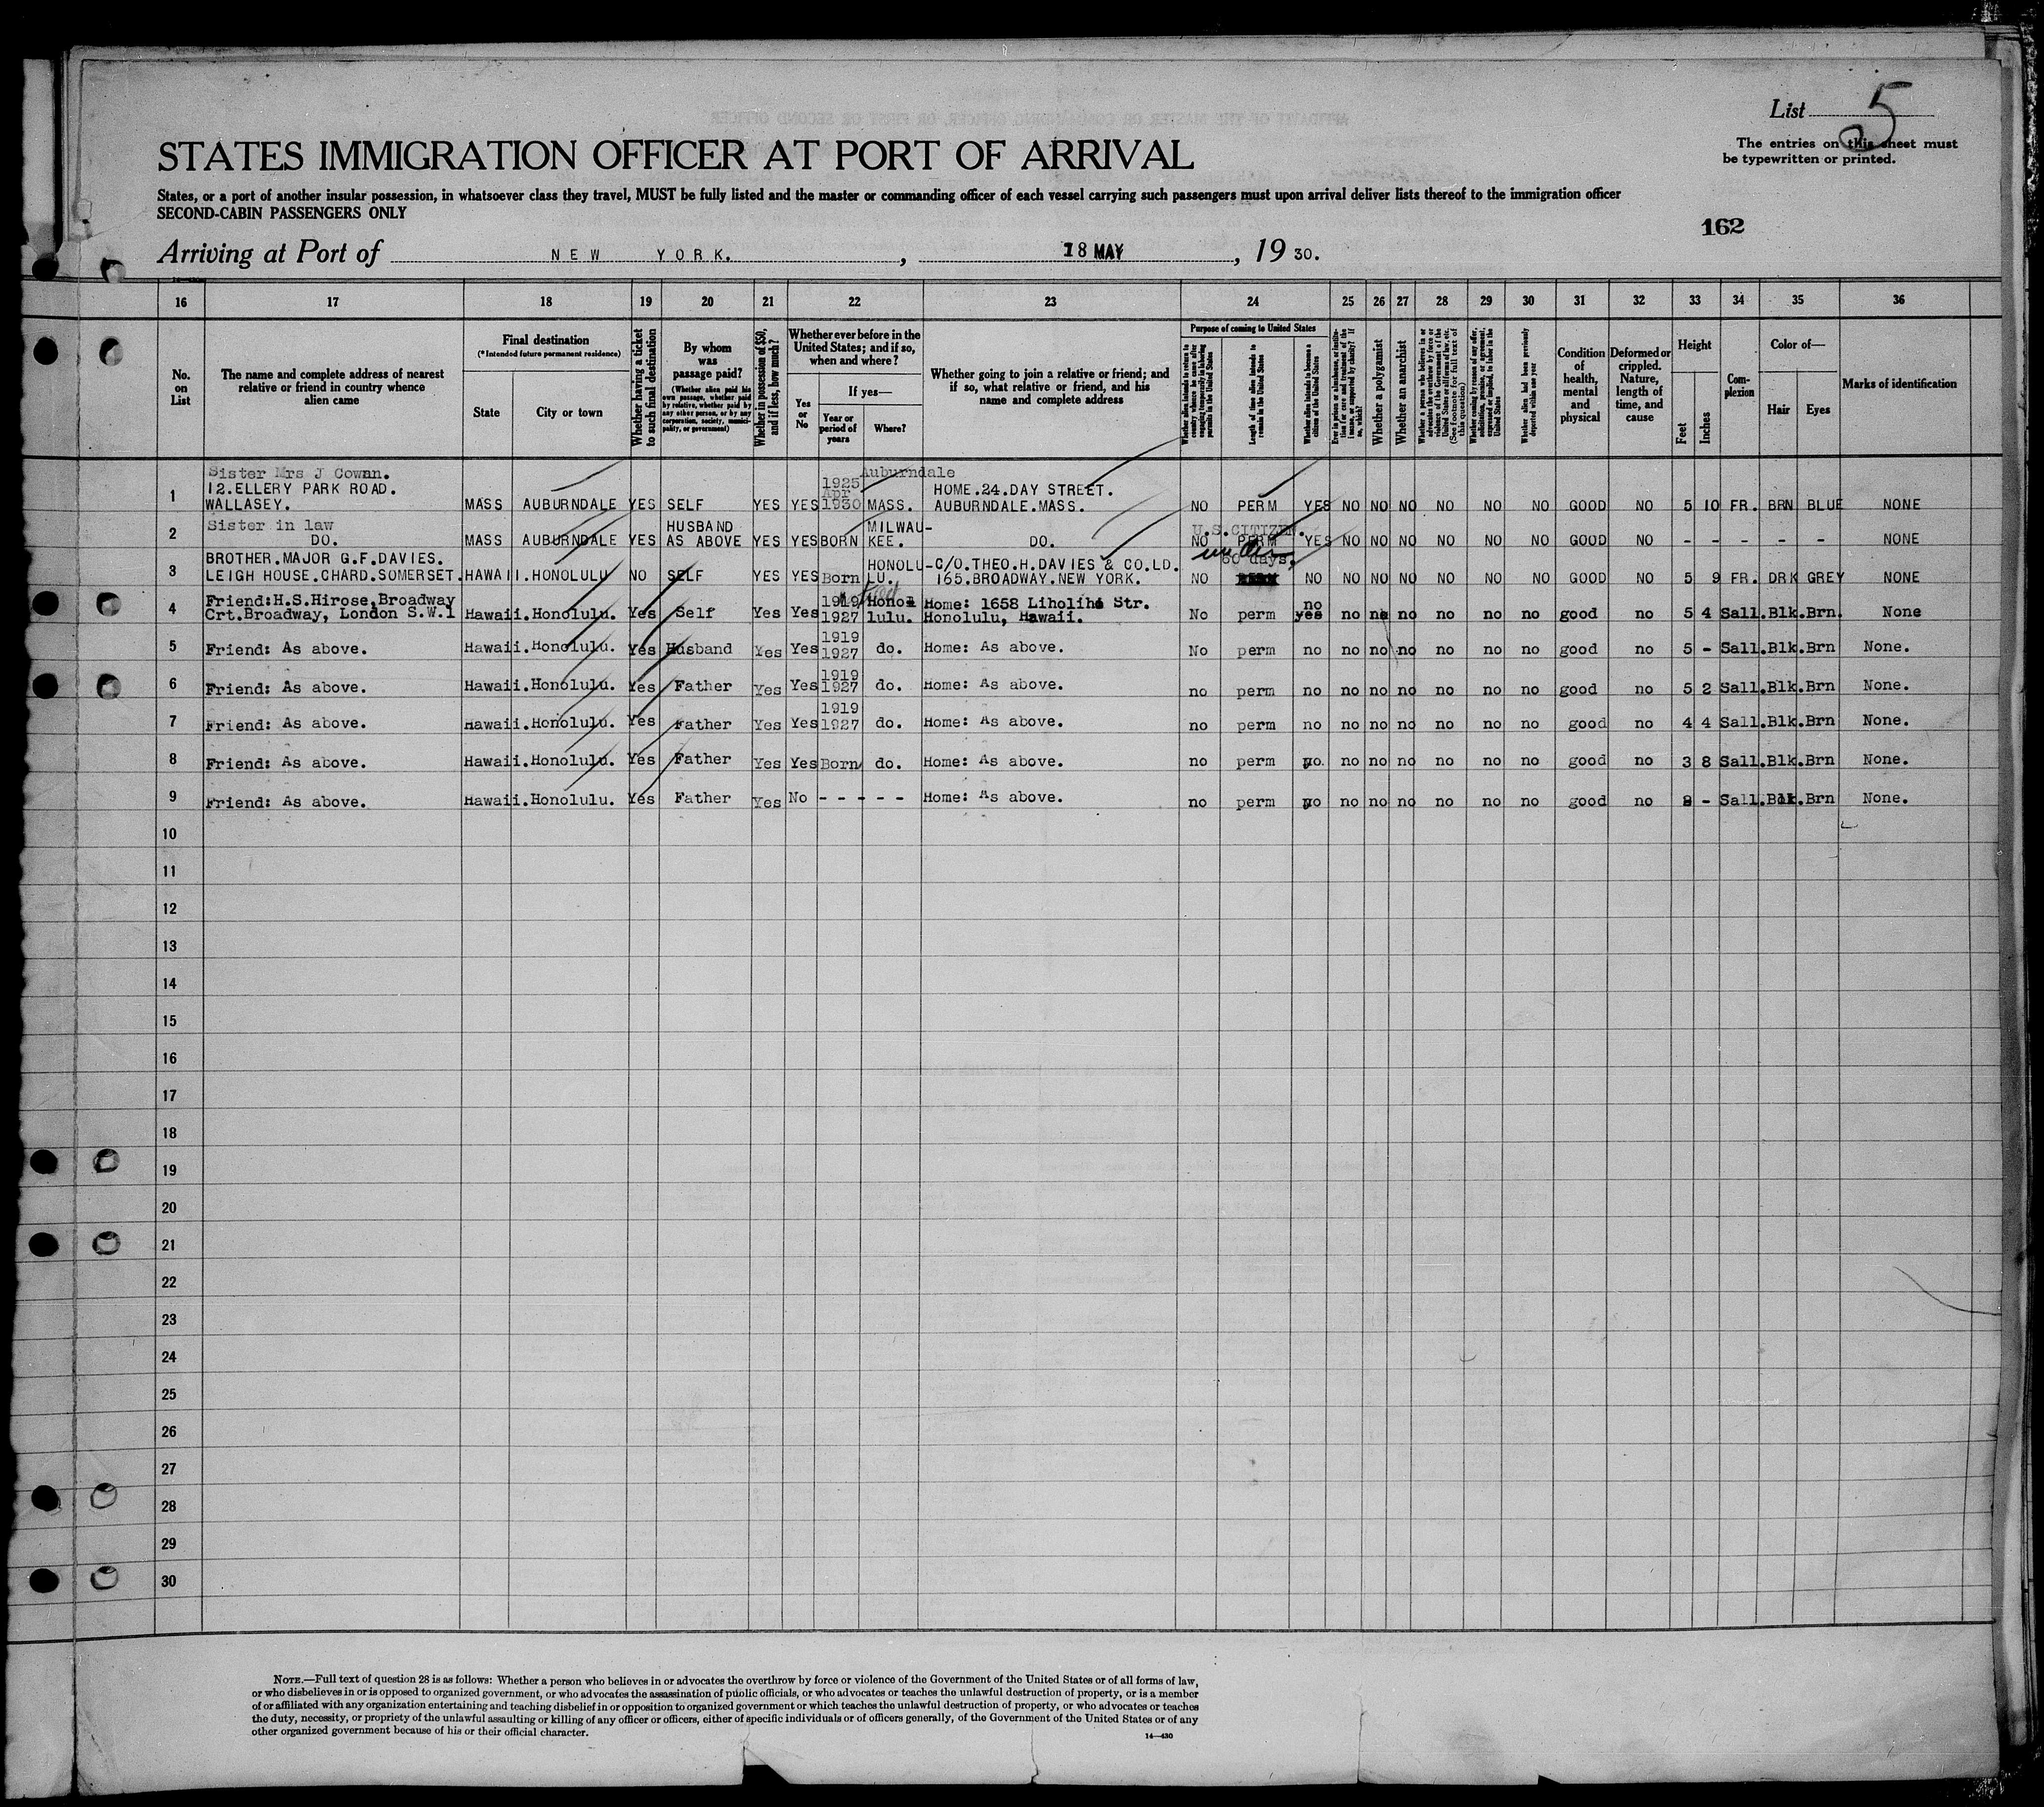 List 5
The entries on this sheet must
be typewritten or printed.
STATES IMMIGRATION OFFICER AT PORT OF ARRIVAL
States, or a port of another insular possession, in whatsoever class they travel, MUST be fully listed and the master or commanding officer of each vessel carrying such passengers must upon arrival deliver lists thereof to the immigration officer
SECOND-CABIN PASSENGERS ONLY
162
Arriving at Port of NEW YORK. , 18 MAY , 19 30.
16 17 18 19 20 21 22 23 24 25 26 27 28 29 30 31 32 33 34 35 36
No. on List
The name and complete address of nearest relative or friend in country whence alien came
Final destination
(*Intended future permanent residence)
State
City or town
Whether having a ticket to such final destination
By whom was passage paid?
(Whether alien paid his own passage, whether paid by relative, whether paid by any other person, or by any corporation, society, municipality, or government)
Whether in possession of $50, and if less, how much?
Whether ever before in the United States; and if so, when and where?
Yes or No
If yes—
Year or period of years
Where?
Whether going to join a relative or friend; and if so, what relative or friend, and his name and complete address
Purpose of coming to United States
Whether alien intends to return to country whence he came after engaging temporarily in laboring pursuits in the United States
Length of time alien intends to remain in the United States
Whether alien intends to become a citizen of the United States
Ever in prison or almshouse, or institution for care and treatment of the insane, or supported by charity? If so, which?
Whether a polygamist
Whether an anarchist
Whether a person who believes in or advocates the overthrow by force or violence of the Government of the United States or all forms of law, etc. (See footnote for full text of this question)
Whether coming by reason of any offer, solicitation, promise, or agreement, expressed or implied, to labor in the United States
Whether alien had been previously deported within one year
Condition of health, mental and physical
Deformed or crippled. Nature, length of time, and cause
Height
Feet
Inches
Complexion
Color of—
Hair
Eyes
Marks of identification
1 Sister Mrs J Cowan. 12.ELLERY PARK ROAD. WALLASEY. MASS AUBURNDALE YES SELF YES YES 1925 Apr 1930 Auburndale MASS. HOME.24.DAY STREET. AUBURNDALE.MASS. NO PERM YES NO NO NO NO NO NO GOOD NO 5 10 FR. BRN BLUE NONE
2 Sister in law DO. MASS AUBURNDALE YES HUSBAND AS ABOVE YES YES BORN MILWAU-KEE. DO. U.S.CITIZEN. NO PERM YES NO NO NO NO NO NO GOOD NO - - - - - NONE
3 BROTHER.MAJOR G.F.DAVIES. LEIGH HOUSE.CHARD.SOMERSET. HAWAII.HONOLULU NO SELF YES YES Born HONOLU-LU. C/O.THEO.H.DAVIES & CO.LD. 165.BROADWAY.NEW YORK. NO under 60 days. NO NO NO NO NO NO NO GOOD NO 5 9 FR. DRK GREY NONE
4 Friend:H.S.Hirose,Broadway Crt.Broadway, London S.W.1 Hawaii.Honolulu. Yes Self Yes Yes 1919 1927 Honolulu. Home: 1658 Liholiho Str. Honolulu, Hawaii. No perm yes no no no no no no no good no 5 4 Sall.Blk.Brn. None
5 Friend: As above. Hawaii.Honolulu. Yes Husband Yes Yes 1919 1927 do. Home: As above. No perm no no no no no no no good no 5 - Sall.Blk.Brn None.
6 Friend: As above. Hawaii.Honolulu. Yes Father Yes Yes 1919 1927 do. Home: As above. no perm no no no no no no no good no 5 2 Sall.Blk.Brn None.
7 Friend: As above. Hawaii.Honolulu. Yes Father Yes Yes 1919 1927 do. Home: As above. no perm no no no no no no no good no 4 4 Sall.Blk.Brn None.
8 Friend: As above. Hawaii.Honolulu. Yes Father Yes Yes Born do. Home: As above. no perm no. no no no no no no good no 3 8 Sall.Blk.Brn None.
9 Friend: As above. Hawaii.Honolulu. Yes Father Yes No - - - - - Home: As above. no perm no no no no no no no good no - Sall.Blk.Brn None.
10
11
12
13
14
15
16
17
18
19
20
21
22
23
24
25
26
27
28
29
30
NOTE.—Full text of question 28 is as follows: Whether a person who believes in or advocates the overthrow by force or violence of the Government of the United States or of all forms of law,
or who disbelieves in or is opposed to organized government, or who advocates the assassination of public officials, or who advocates or teaches the unlawful destruction of property, or is a member
of or affiliated with any organization entertaining and teaching disbelief in or opposition to organized government or which teaches the unlawful destruction of property, or who advocates or teaches
the duty, necessity, or propriety of the unlawful assaulting or killing of any officer or officers, either of specific individuals or of officers generally, of the Government of the United States or of any
other organized government because of his or their official character.
14—430